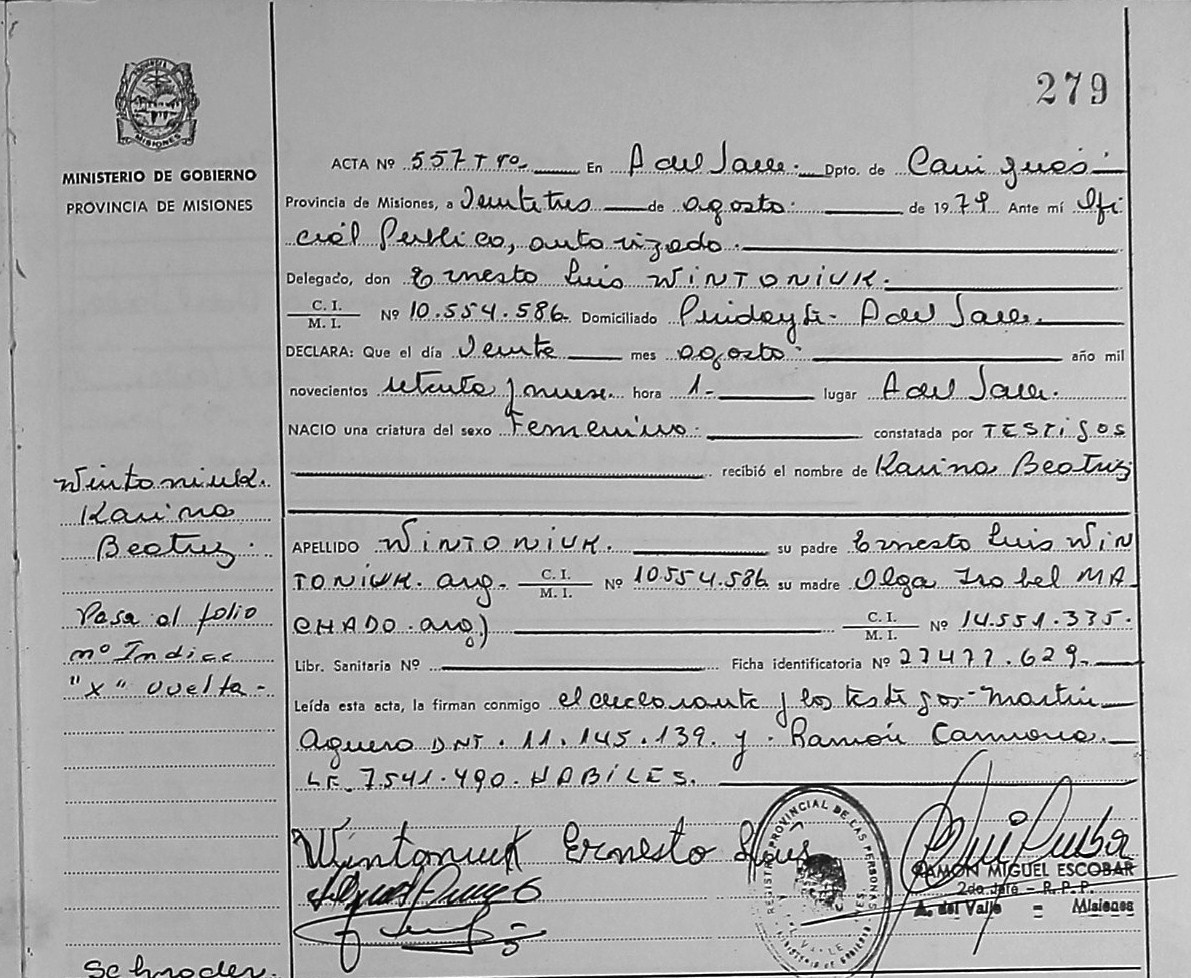 279
PROVINCIA DE MISIONES
MINISTERIO DE GOBIERNO
PROVINCIA DE MISIONES
ACTA Nº 557 Tº En A del Valle. Dpto. de Cainguás
Provincia de Misiones, a Veintitres de agosto de 1979 Ante mí Ofi
cial Publico, autorizado.
Delegado, don Ernesto Luis WiNTONiUK.
C. I. / M. I. Nº 10.554.586 Domiciliado A del Valle.
DECLARA: Que el día Veinte mes agosto año mil
novecientos setenta y nueve. hora 1- lugar A del Valle.
NACIO una criatura del sexo Femenino. constatada por TESTigos
recibió el nombre de Karina Beatriz
Wintoniuk.
Karina
Beatriz.
APELLIDO WiNTONiUK. su padre Ernesto Luis WiN
TONiUK. arg. C. I. / M. I. Nº 10.554.586 su madre Olga Isabel MA
CHADO. arg) C. I. / M. I. Nº 14.551.335.
Pasa al folio
nº Indice
"x" vuelta -
Libr. Sanitaria Nº Ficha identificatoria Nº 27477.629.
Leída esta acta, la firman conmigo el declarante y los testigos - Martin
Aguero DNI. 11.145.139. y Ramón Carmona.
LE. 7.541.490. HABiLES.
Wintoniuk Ernesto Luis
REGISTRO PROVINCIAL DE LAS PERSONAS
RAMON MIGUEL ESCOBAR
2do. Jefe - R. P. P.
A. del Valle - Misiones
Schroder.